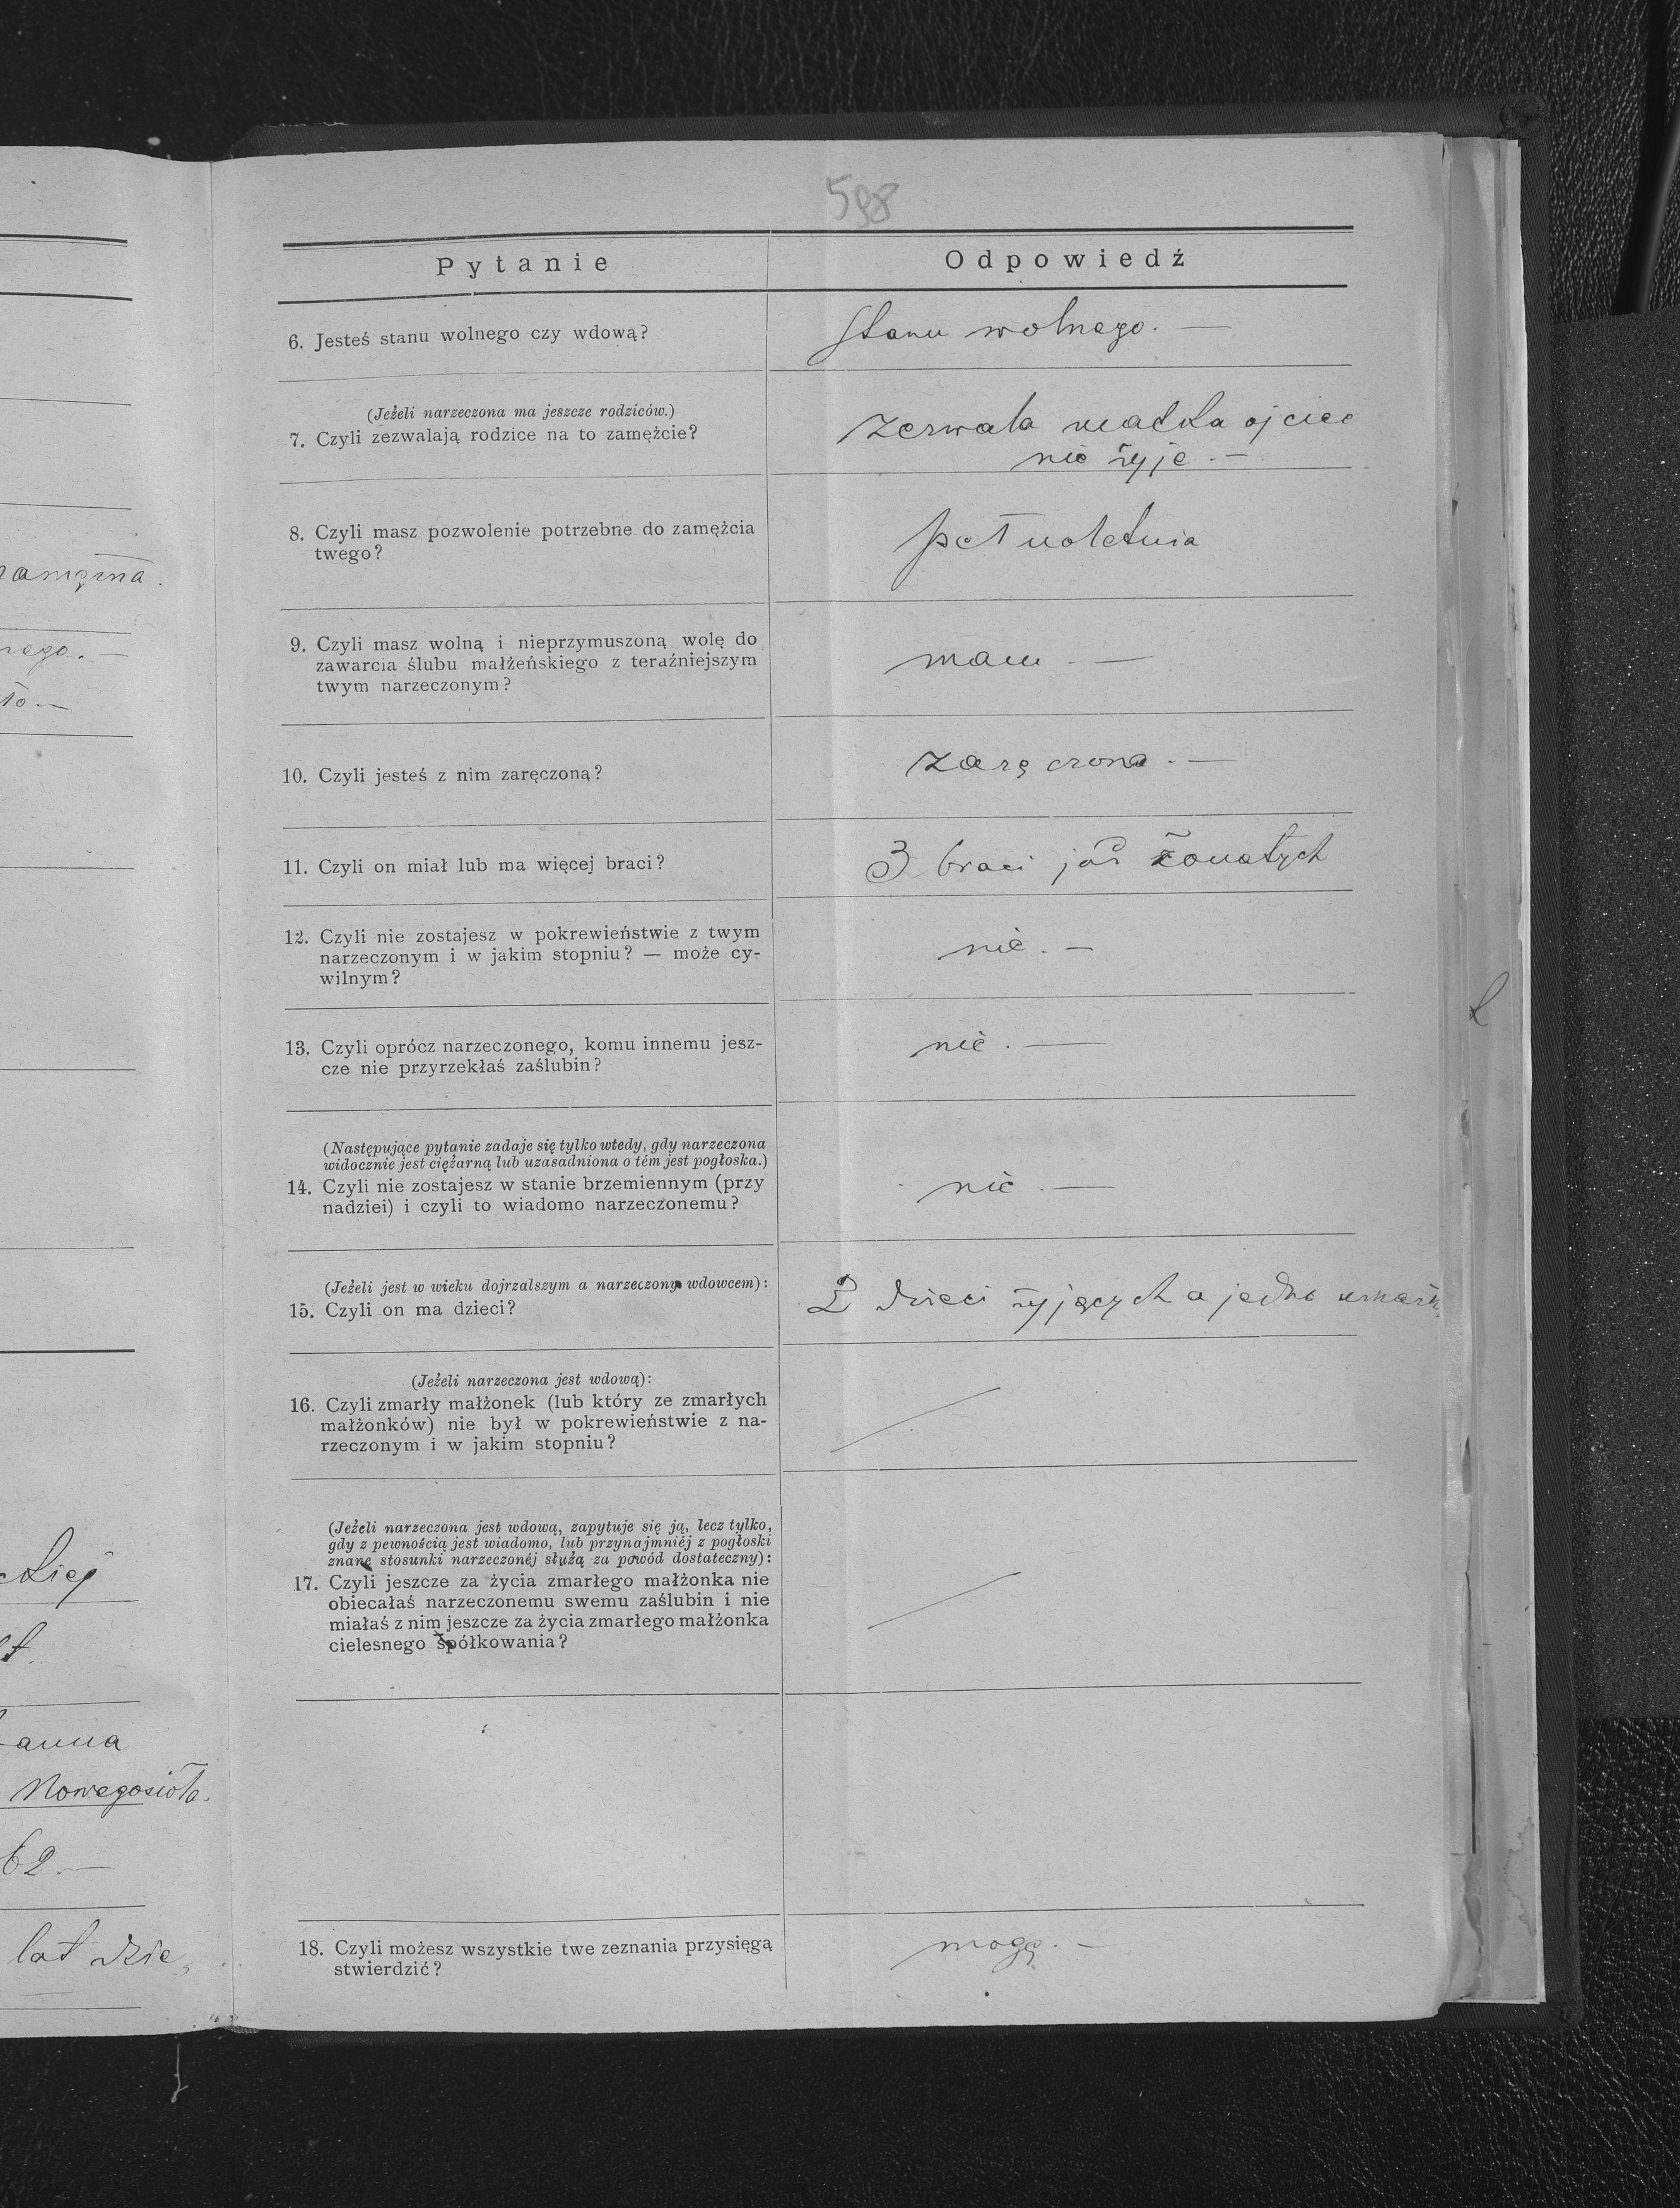 598
Pytanie
Odpowiedź
6. Jesteś stanu wolnego czy wdową?
Stanu wolnego. —
(Jeżeli narzeczona ma jeszcze rodziców.)
7. Czyli zezwalają rodzice na to zamężcie?
zezwala matka ojciec
nie żyje. —
8. Czyli masz pozwolenie potrzebne do zamężcia
twego?
pełnoletnia
9. Czyli masz wolną i nieprzymuszoną wolę do
zawarcia ślubu małżeńskiego z teraźniejszym
twym narzeczonym?
mam. —
10. Czyli jesteś z nim zaręczoną?
zaręczona. —
11. Czyli on miał lub ma więcej braci?
3 braci już żonatych
12. Czyli nie zostajesz w pokrewieństwie z twym
narzeczonym i w jakim stopniu? — może cy-
wilnym?
nie. —
13. Czyli oprócz narzeczonego, komu innemu jesz-
cze nie przyrzekłaś zaślubin?
nie. —
(Następujące pytanie zadaje się tylko wtedy, gdy narzeczona
widocznie jest ciężarną lub uzasadniona o tém jest pogłoska.)
14. Czyli nie zostajesz w stanie brzemiennym (przy
nadziei) i czyli to wiadomo narzeczonemu?
nie. —
(Jeżeli jest w wieku dojrzalszym a narzeczony wdowcem):
15. Czyli on ma dzieci?
2 dzieci żyjących a jedno
(Jeżeli narzeczona jest wdową):
16. Czyli zmarły małżonek (lub który ze zmarłych
małżonków) nie był w pokrewieństwie z na-
rzeczonym i w jakim stopniu?
(Jeżeli narzeczona jest wdową, zapytuje się ją, lecz tylko,
gdy z pewnością jest wiadomo, lub przynajmniéj z pogłoski
znane stosunki narzeczonéj służą za powód dostateczny):
17. Czyli jeszcze za życia zmarłego małżonka nie
obiecałaś narzeczonemu swemu zaślubin i nie
miałaś z nim jeszcze za życia zmarłego małżonka
cielesnego spółkowania?
18. Czyli możesz wszystkie twe zeznania przysięgą
stwierdzić?
mogę. —
anna
Nowegosioła.
62. —
lat dzie